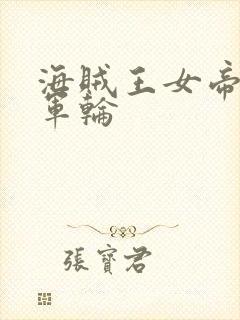 海賊王女帝
軍輪
張寶君